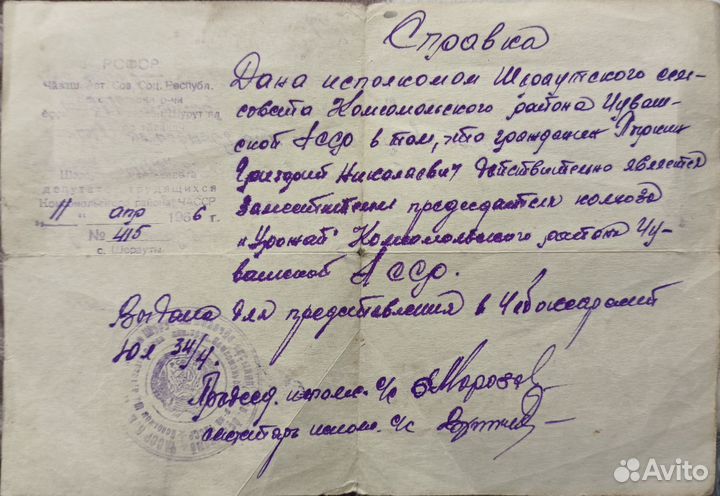 Справка
РСФСР
Чăваш Авт. Сов. Соц. Республ.
депутатов трудящихся
Комсомольского района ЧАССР
„11“ апр 1966 г.
№ 415
с. Шорауты
Дана исполкомом Шораутского сель
совета Комсомольского района Чуваш-
ской АССР в том, что гражданин
Григорий Николаевич действительно является
Заместителем председателя колхоза
„Урожай“ Комсомольского района Чу-
вашской АССР.
Выдана для представления в Чебоксарский
34/4.
Председ. исполк. с/с Морозов
секретарь исполк. с/с
Avito